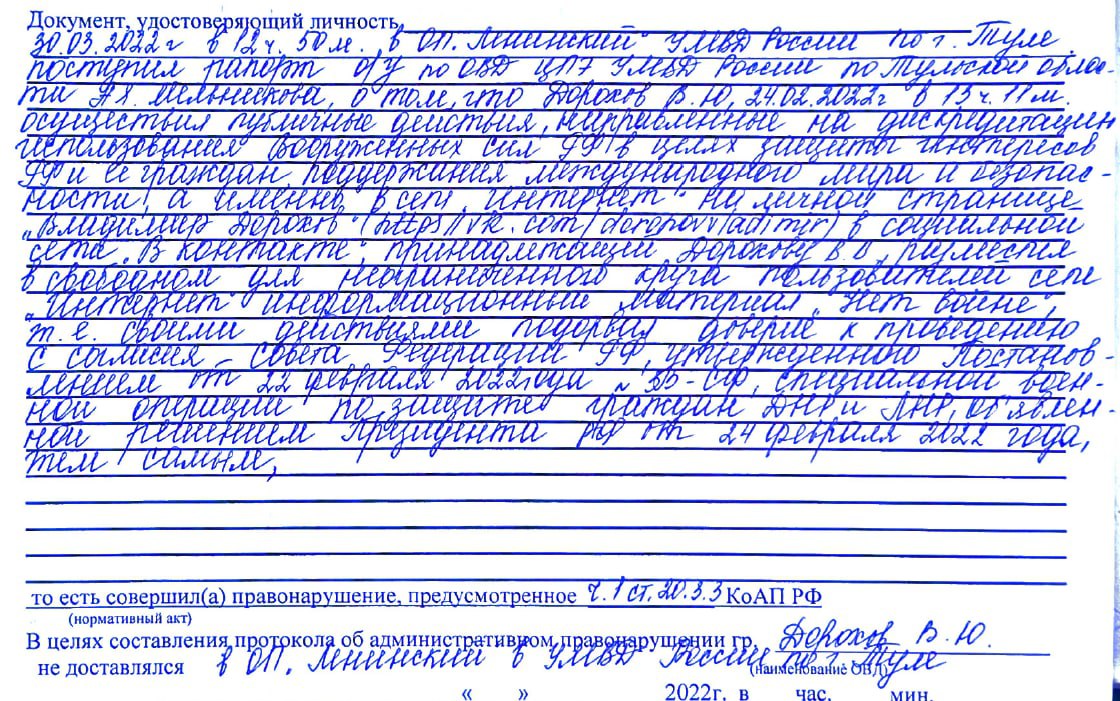 Документ, удостоверяющий личность
30.03.2022г в 12ч. 50м. в ОП „Ленинский" УМВД России по г. Туле
поступил рапорт о/у по ОВД ЦПЭ УМВД России по Тульской облас-
ти А.Х. Мельникова, о том, что Дорохов В.Ю, 24.02.2022г в 13ч. 11м.
осуществил публичные действия, направленные на дискредитацию
использования Вооруженных сил РФ в целях защиты интересов
РФ и ее граждан, поддержания международного мира и безопас-
ности, а именно, в сети „интернет" на личной странице
„Владимир Дорохов" (https://vk.com/ в социальной
сети „В контакте", принадлежащий Дорохову В.Ю, разместил
в свободном для неограниченного круга пользователей сети
„Интернет" информационный материал „Нет войне",
т.е. своими действиями подорвал доверие к проведению
с согласия Совета Федерации РФ, утвержденного Постанов-
лением от 22 февраля 2022 года № 35-СФ, специальной воен-
ной операции по защите граждан ДНР и ЛНР, объявлен-
ной решением Президента РФ от 24 февраля 2022 года,
тем самым,
то есть совершил(а) правонарушение, предусмотренное ч.1 ст.20.3.3 КоАП РФ
(нормативный акт)
В целях составления протокола об административном правонарушении гр. Дорохов В.Ю.
не доставлялся в ОП „Ленинский" в УМВД России по г. Туле
(наименование ОВД)
« » 2022г. в час. мин.